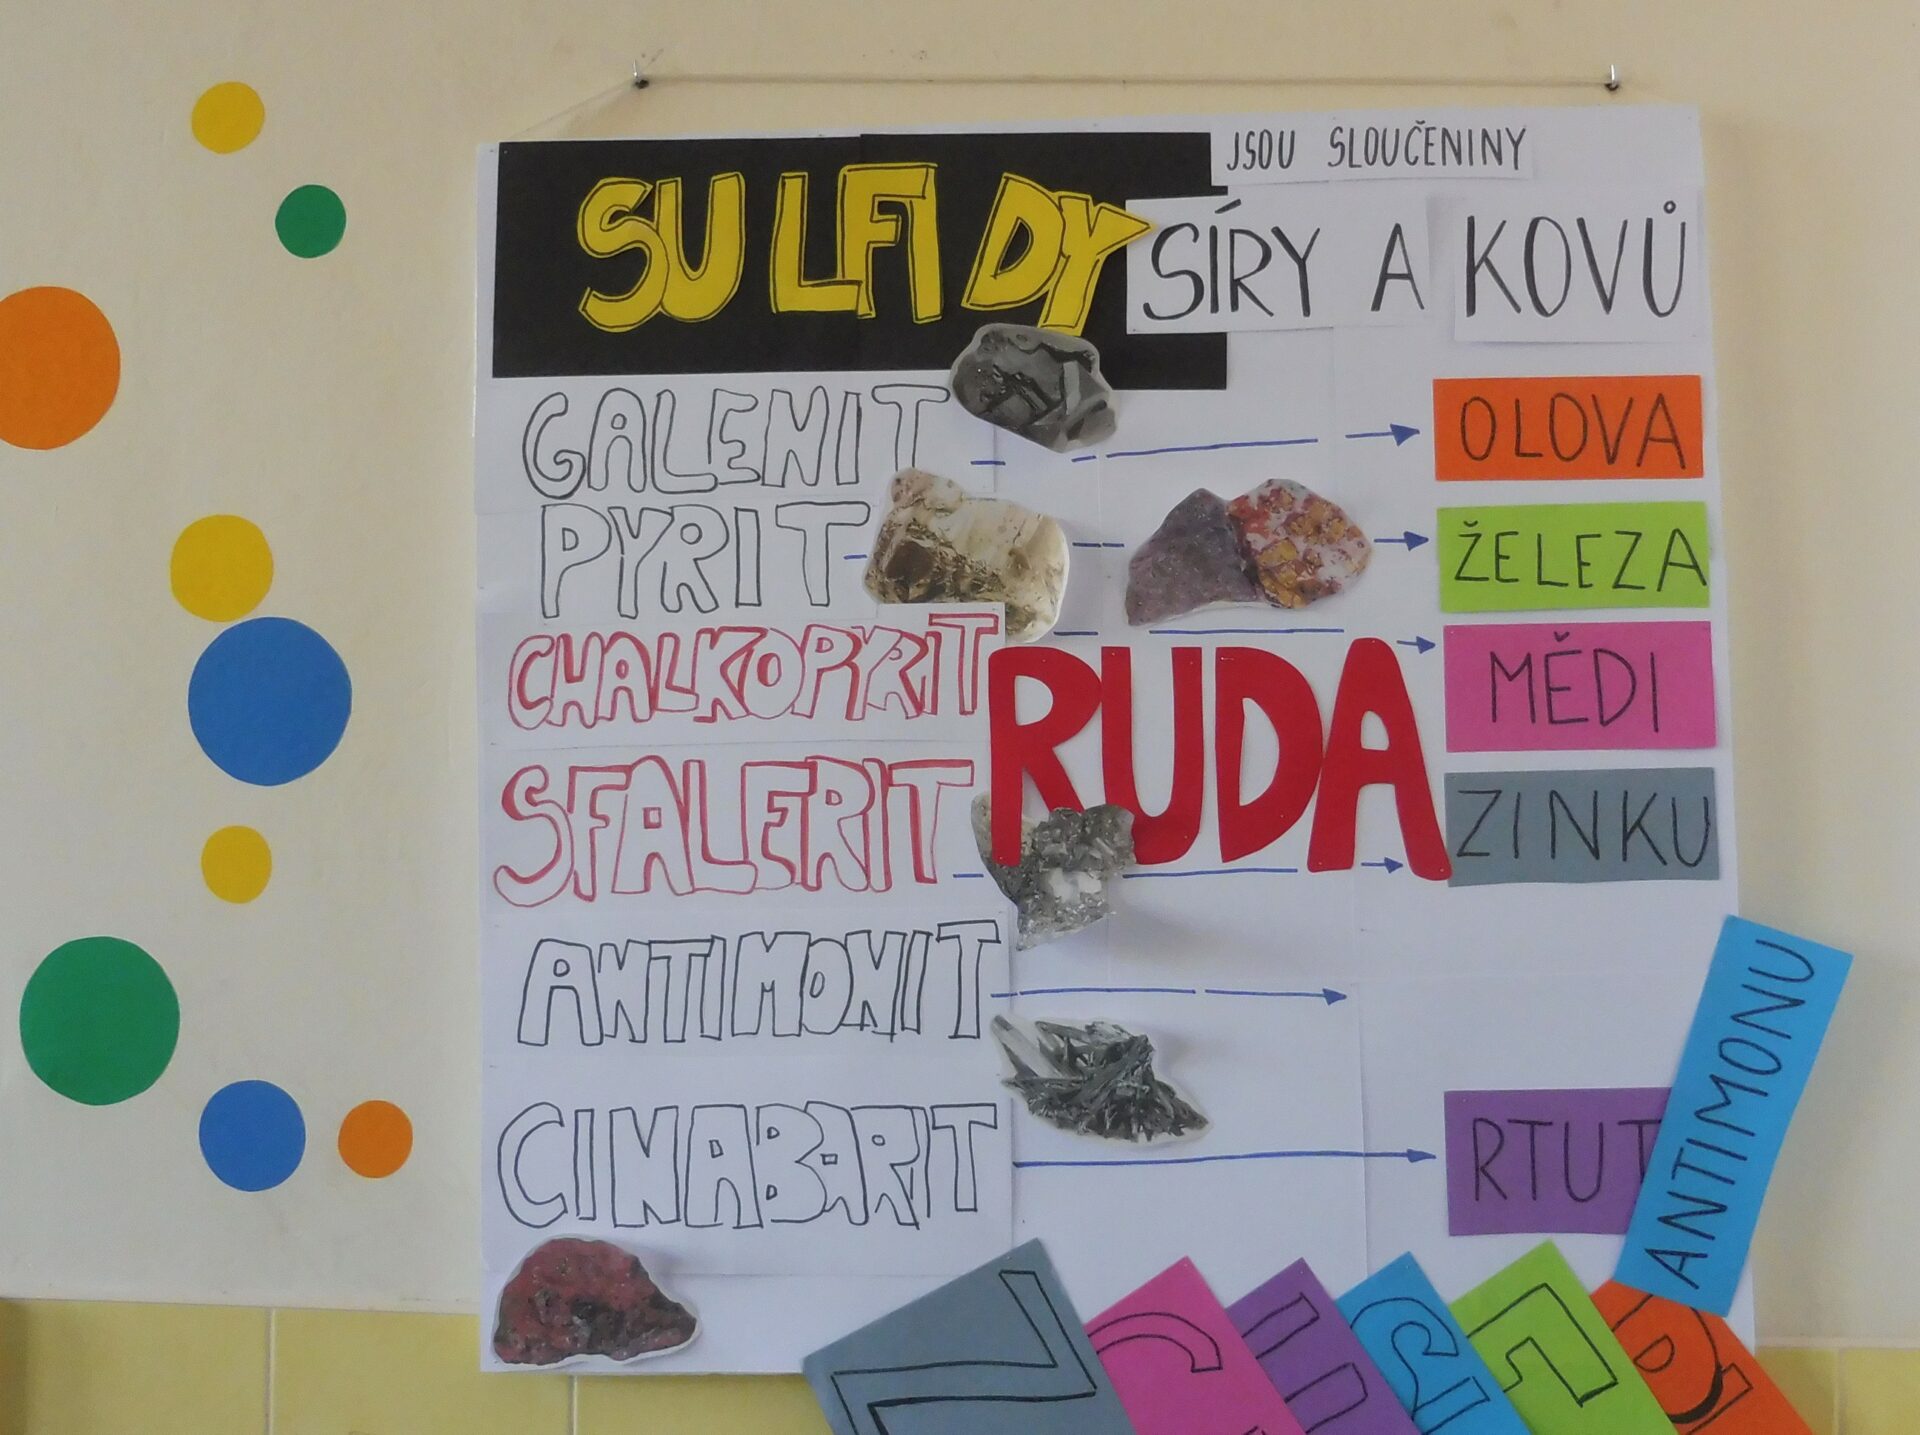 SULFIDY JSOU SLOUČENINY
SÍRY A KOVŮ
GALENIT OLOVA
PYRIT ŽELEZA
CHALKOPYRIT MĚDI
RUDA
SFALERIT ZINKU
ANTIMONIT ANTIMONU
CINABARIT